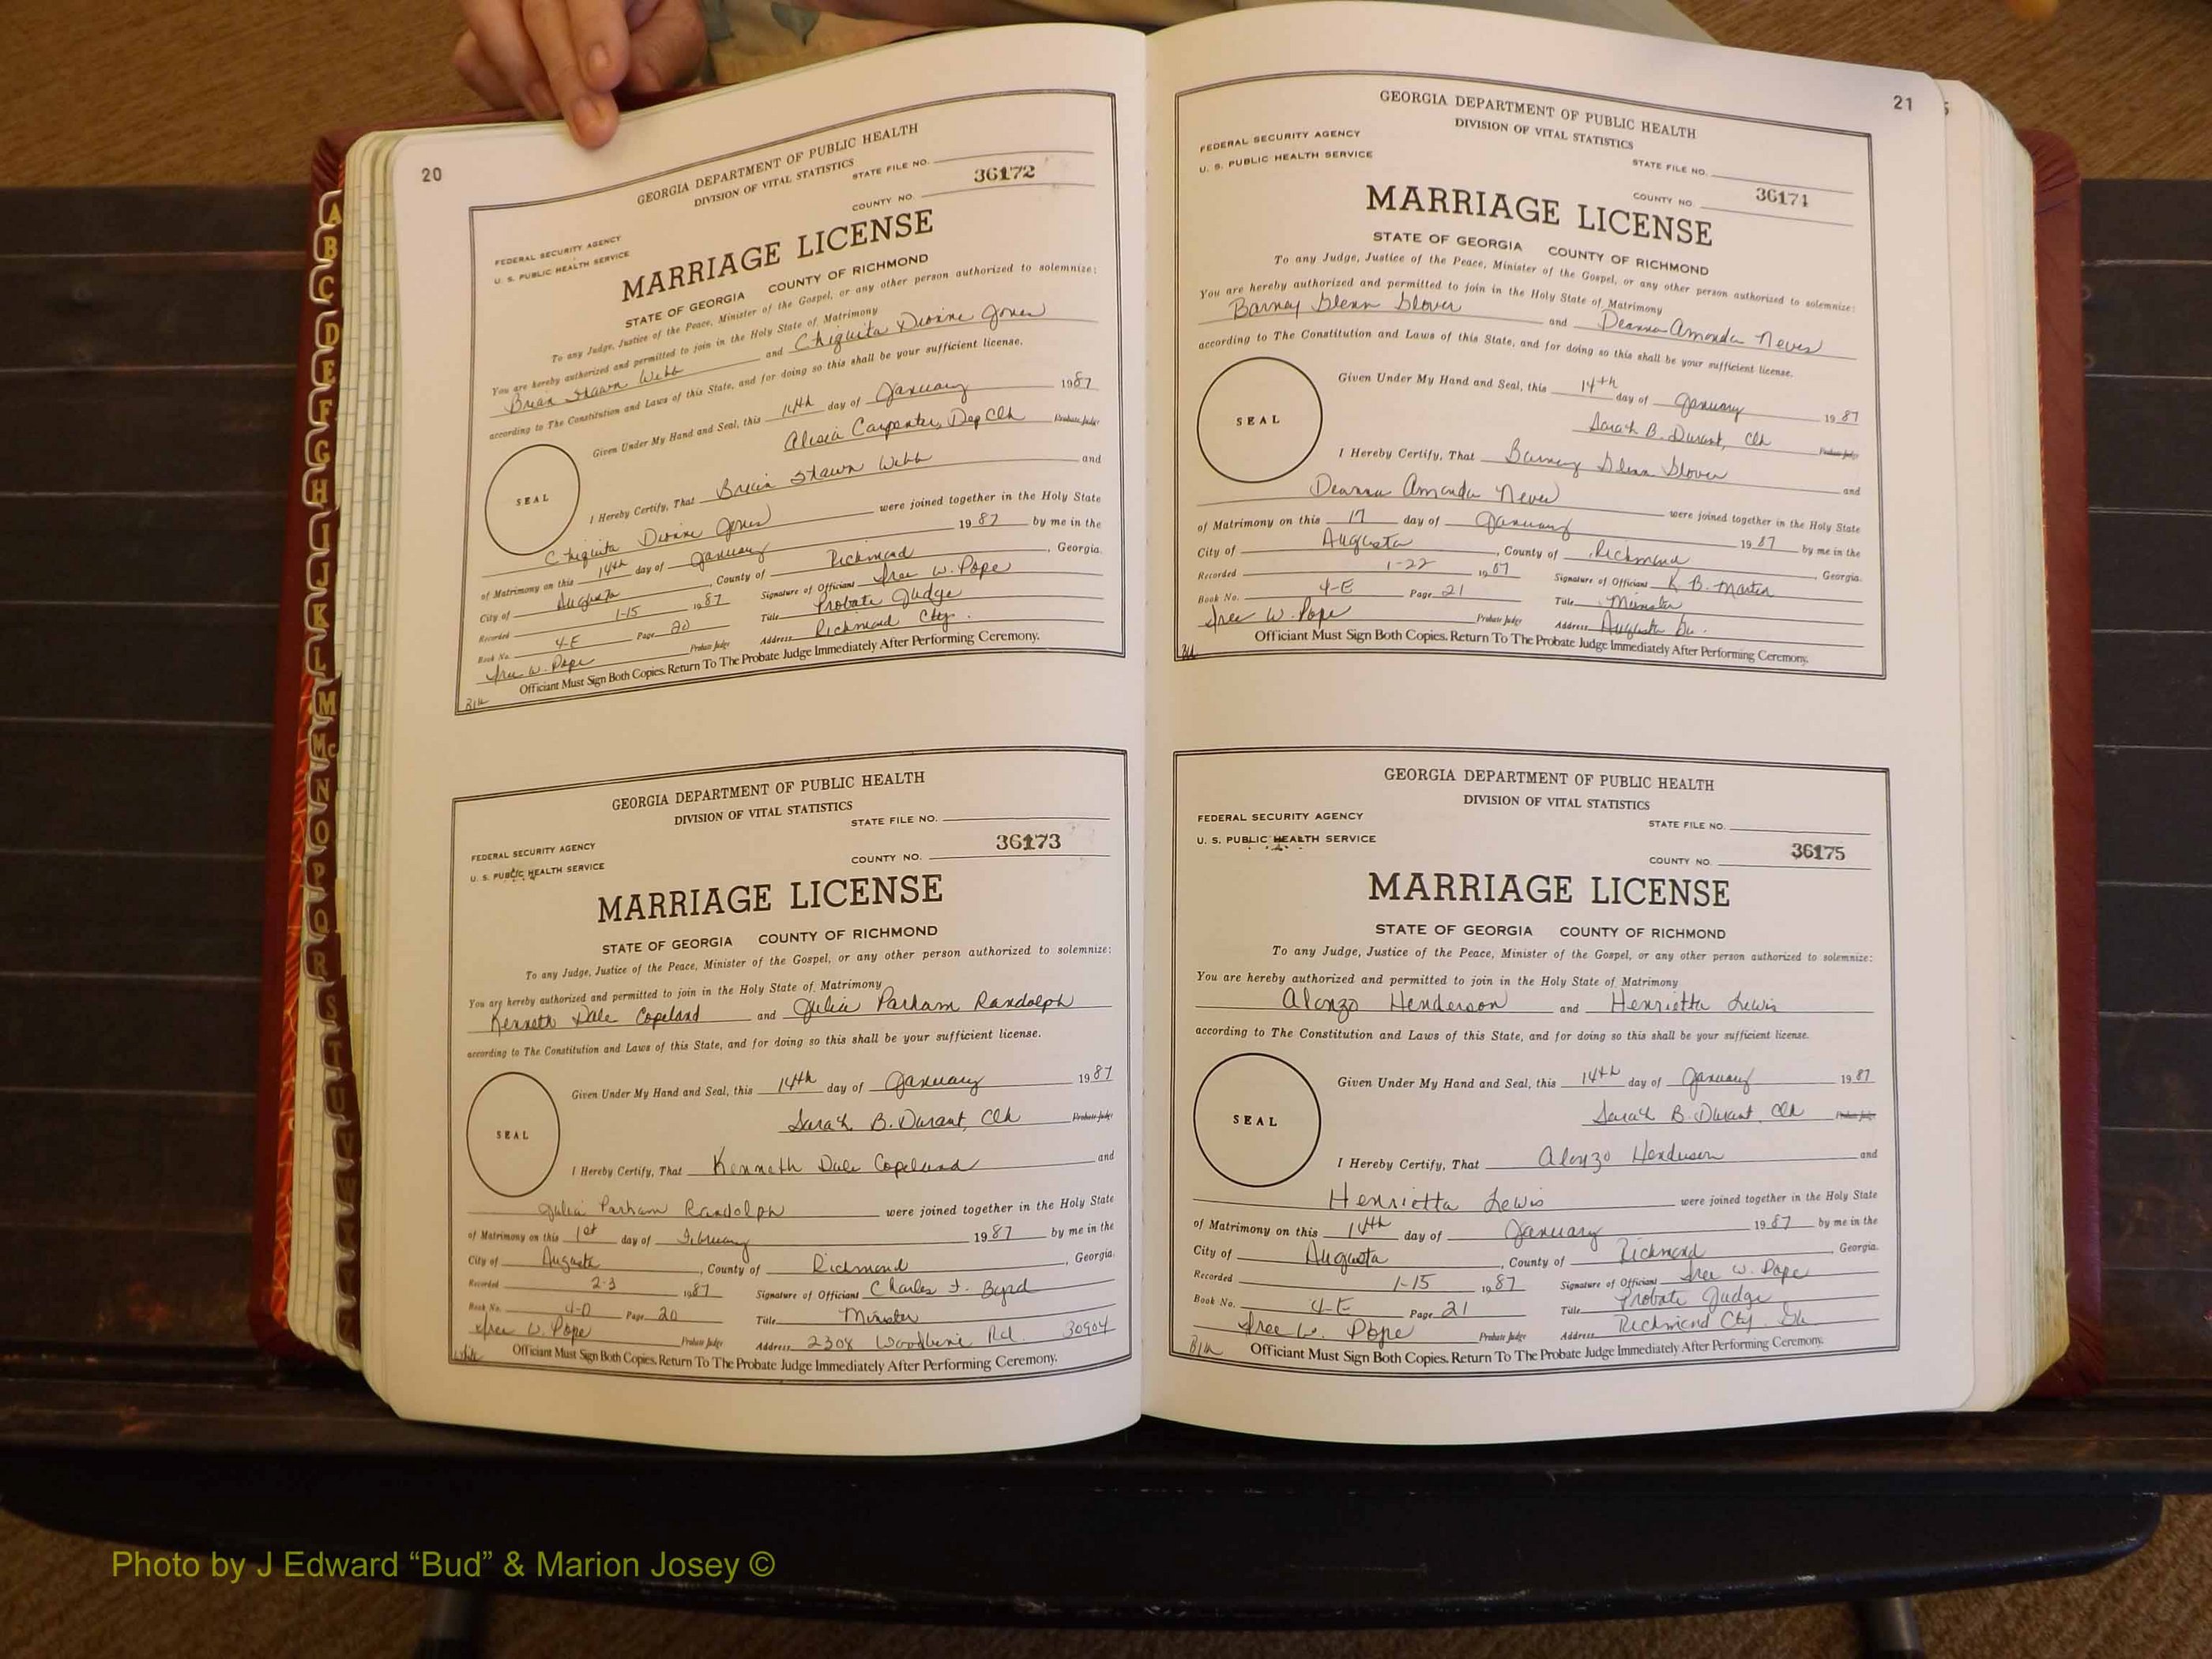 20
GEORGIA DEPARTMENT OF PUBLIC HEALTH
DIVISION OF VITAL STATISTICS
STATE FILE NO.
FEDERAL SECURITY AGENCY
U. S. PUBLIC HEALTH SERVICE
COUNTY NO. 36172
MARRIAGE LICENSE
STATE OF GEORGIA COUNTY OF RICHMOND
To any Judge, Justice of the Peace, Minister of the Gospel, or any other person authorized to solemnize:
You are hereby authorized and permitted to join in the Holy State of Matrimony
Brian Shawn Webb and Chiquita Dionne Jones
according to The Constitution and Laws of this State, and for doing so this shall be your sufficient license.
Given Under My Hand and Seal, this 14th day of January 1987
Alisia Carpenter, Dep Clk Probate Judge
SEAL
I Hereby Certify, That Brian Shawn Webb and
Chiquita Dionne Jones were joined together in the Holy State
of Matrimony on this 14th day of January 1987 by me in the
City of Augusta, County of Richmond, Georgia.
Recorded 1-15 1987 Signature of Official W. Pope
Book No. 4-E Page 20 Title Probate Judge
W. Pope Probate Judge Address Richmond Cty.
Officiant Must Sign Both Copies. Return To The Probate Judge Immediately After Performing Ceremony.
GEORGIA DEPARTMENT OF PUBLIC HEALTH
DIVISION OF VITAL STATISTICS
STATE FILE NO.
FEDERAL SECURITY AGENCY
U. S. PUBLIC HEALTH SERVICE
COUNTY NO. 36173
MARRIAGE LICENSE
STATE OF GEORGIA COUNTY OF RICHMOND
To any Judge, Justice of the Peace, Minister of the Gospel, or any other person authorized to solemnize:
You are hereby authorized and permitted to join in the Holy State of Matrimony
Kenneth Dale Copeland and Julia Parham Randolph
according to The Constitution and Laws of this State, and for doing so this shall be your sufficient license.
Given Under My Hand and Seal, this 14th day of January 1987
Sarah B. Durant, Clk Probate Judge
SEAL
I Hereby Certify, That Kenneth Dale Copeland and
Julia Parham Randolph were joined together in the Holy State
of Matrimony on this 1st day of February 1987 by me in the
City of Augusta, County of Richmond, Georgia.
Recorded 2-3 1987 Signature of Official Charles F. Byrd
Book No. 4-D Page 20 Title Minister
W. Pope Probate Judge Address 2308 Woodbine Rd. 30904
Officiant Must Sign Both Copies. Return To The Probate Judge Immediately After Performing Ceremony.
21
GEORGIA DEPARTMENT OF PUBLIC HEALTH
DIVISION OF VITAL STATISTICS
FEDERAL SECURITY AGENCY
U. S. PUBLIC HEALTH SERVICE
STATE FILE NO.
COUNTY NO. 36174
MARRIAGE LICENSE
STATE OF GEORGIA COUNTY OF RICHMOND
To any Judge, Justice of the Peace, Minister of the Gospel, or any other person authorized to solemnize:
You are hereby authorized and permitted to join in the Holy State of Matrimony
Barney Glenn Glover and Deanna Amanda Never
according to The Constitution and Laws of this State, and for doing so this shall be your sufficient license.
Given Under My Hand and Seal, this 14th day of January 1987
Sarah B. Durant, Clk Probate Judge
SEAL
I Hereby Certify, That Barney Glenn Glover and
Deanna Amanda Never were joined together in the Holy State
of Matrimony on this 17 day of January 1987 by me in the
City of Augusta, County of Richmond, Georgia.
Recorded 1-22 1987 Signature of Official K. B. Martin
Book No. 4-E Page 21 Title Minister
W. Pope Probate Judge Address Augusta Ga.
Officiant Must Sign Both Copies. Return To The Probate Judge Immediately After Performing Ceremony.
GEORGIA DEPARTMENT OF PUBLIC HEALTH
DIVISION OF VITAL STATISTICS
FEDERAL SECURITY AGENCY
STATE FILE NO.
U. S. PUBLIC HEALTH SERVICE
COUNTY NO. 36175
MARRIAGE LICENSE
STATE OF GEORGIA COUNTY OF RICHMOND
To any Judge, Justice of the Peace, Minister of the Gospel, or any other person authorized to solemnize:
You are hereby authorized and permitted to join in the Holy State of Matrimony
Alonzo Henderson and Henrietta Lewis
according to The Constitution and Laws of this State, and for doing so this shall be your sufficient license.
Given Under My Hand and Seal, this 14th day of January 1987
Sarah B. Durant, Clk Probate Judge
SEAL
I Hereby Certify, That Alonzo Henderson and
Henrietta Lewis were joined together in the Holy State
of Matrimony on this 14th day of January 1987 by me in the
City of Augusta, County of Richmond, Georgia.
Recorded 1-15 1987 Signature of Official W. Pope
Book No. 4-E Page 21 Title Probate Judge
W. Pope Probate Judge Address Richmond Cty. Ga
Officiant Must Sign Both Copies. Return To The Probate Judge Immediately After Performing Ceremony.
A
B
C
D
E
F
G
H
I
J
K
L
M
Mc
N
O
P
Q
R
S
T
U
V
Photo by J Edward “Bud” & Marion Josey ©